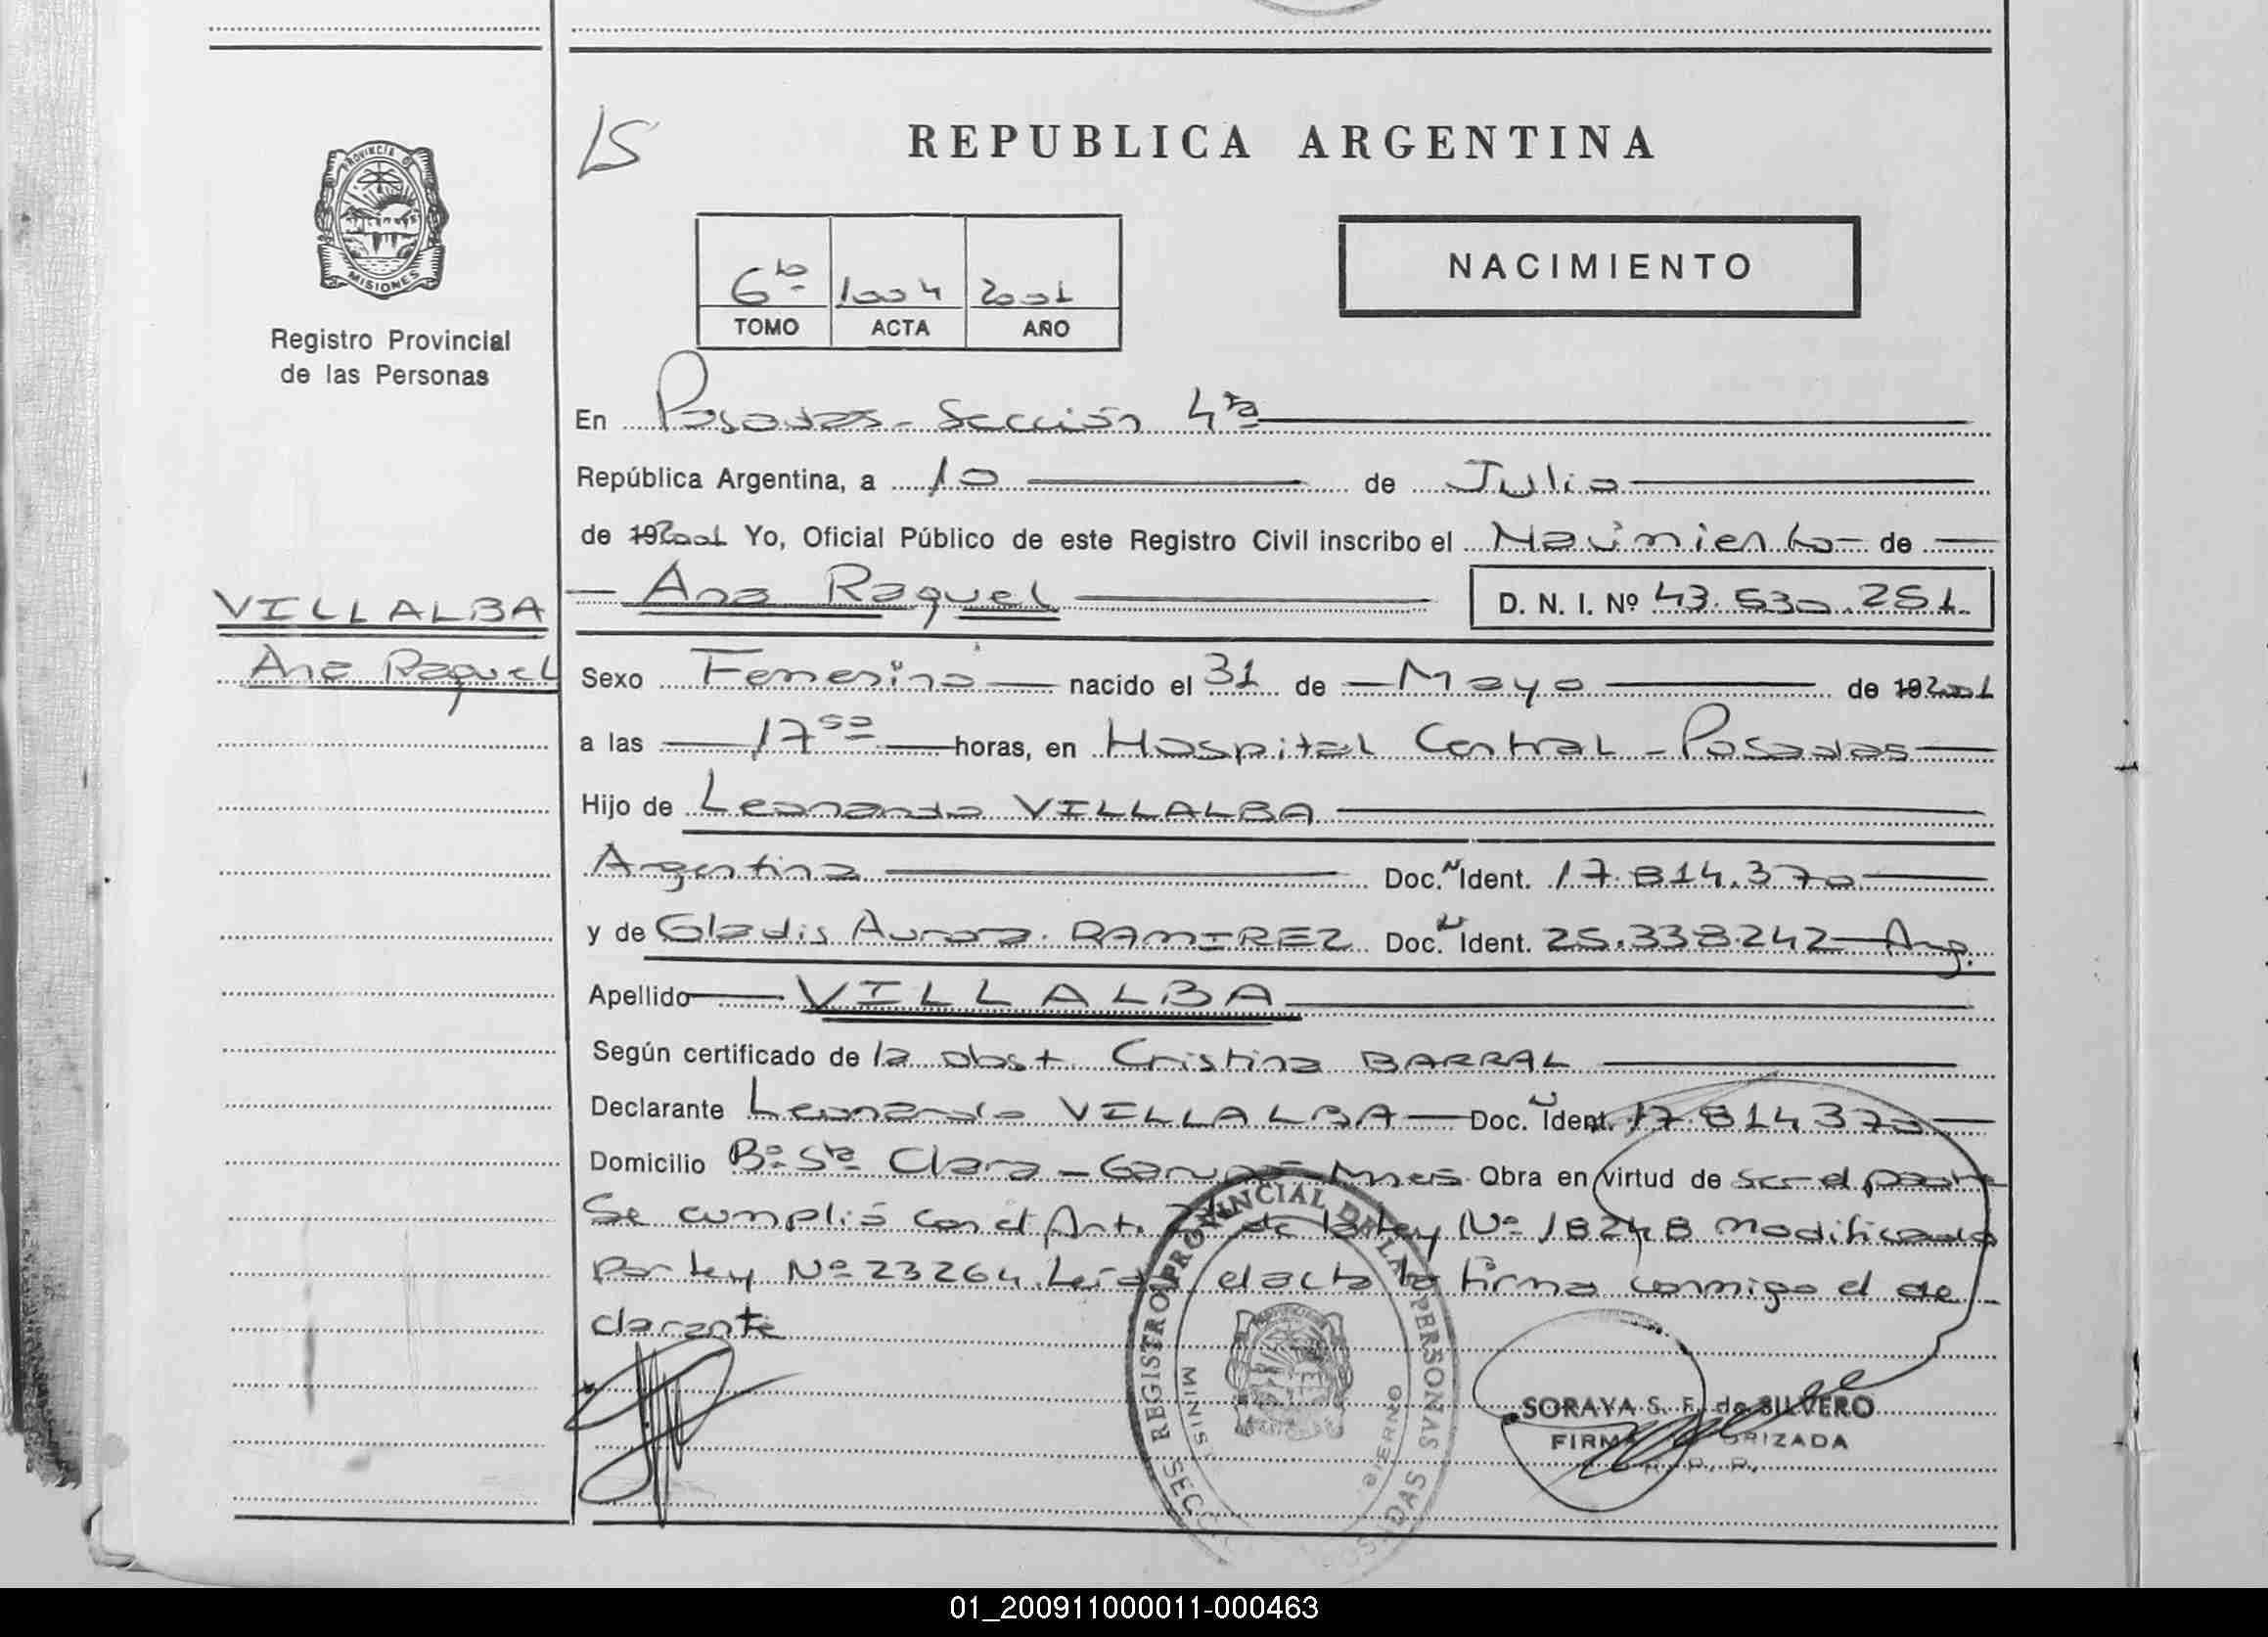 PROVINCIA D
MISIONES
Registro Provincial
de las Personas
VILLALBA
Ana Raquel
REPUBLICA ARGENTINA
6to 1004 2001
TOMO ACTA AÑO
NACIMIENTO
En Posadas - Sección 4ta
República Argentina, a 10 de Julio
de 192001 Yo, Oficial Público de este Registro Civil inscribo el Nacimiento de
Ana Raquel D. N. I. Nº 43.630.251
Sexo Femenino nacido el 31 de Mayo de 192001
a las 17 50 horas, en Hospital Central - Posadas
Hijo de Leonardo VILLALBA
Argentina Doc. N Ident. 17.814.370
y de Gladis Aurora RAMIREZ Doc. N Ident. 25.338.242 - Arg.
Apellido VILLALBA
Según certificado de la obst. Cristina BARRAL
Declarante Leonardo VILLALBA - Doc. N Ident. 17.814.370
Domicilio Bº Sta Clara - Garupá Mnes Obra en virtud de ser el padre
Se cumplió con el Art. de la ley Nº 18248 modificado
por ley Nº 23264. Leída el acta la firma conmigo el de-
clarante
REGISTRO PROVINCIAL DE LAS PERSONAS
SORAYA S. F. de SILVERO
FIRMA AUTORIZADA
01_200911000011-000463